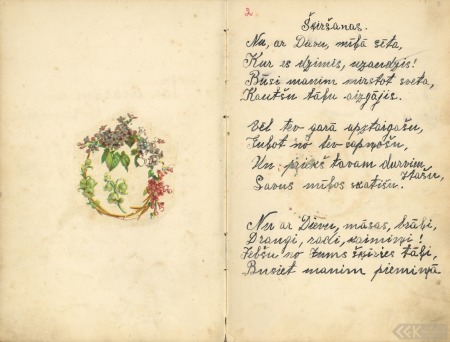 2.
Šķiršanas.
Nu, ar Dievu, mīļā sēta,
Kur es dzimis, uzaudzis!
Būsi manim mirstot sveta,
Kautšu tāļu aizgājis.
Vēl tev garā apstaigašu,
Jubot no tev sapņošu,
Un priekš tavam durvim,
stašu,
Savus mīļos skatišu.
Nu ar Dievu, māsas, brāļi,
Draugi, radi, kaimiņi!
Jebšu no Jums šķiries tāļi,
Busiet manim piemiņā
K